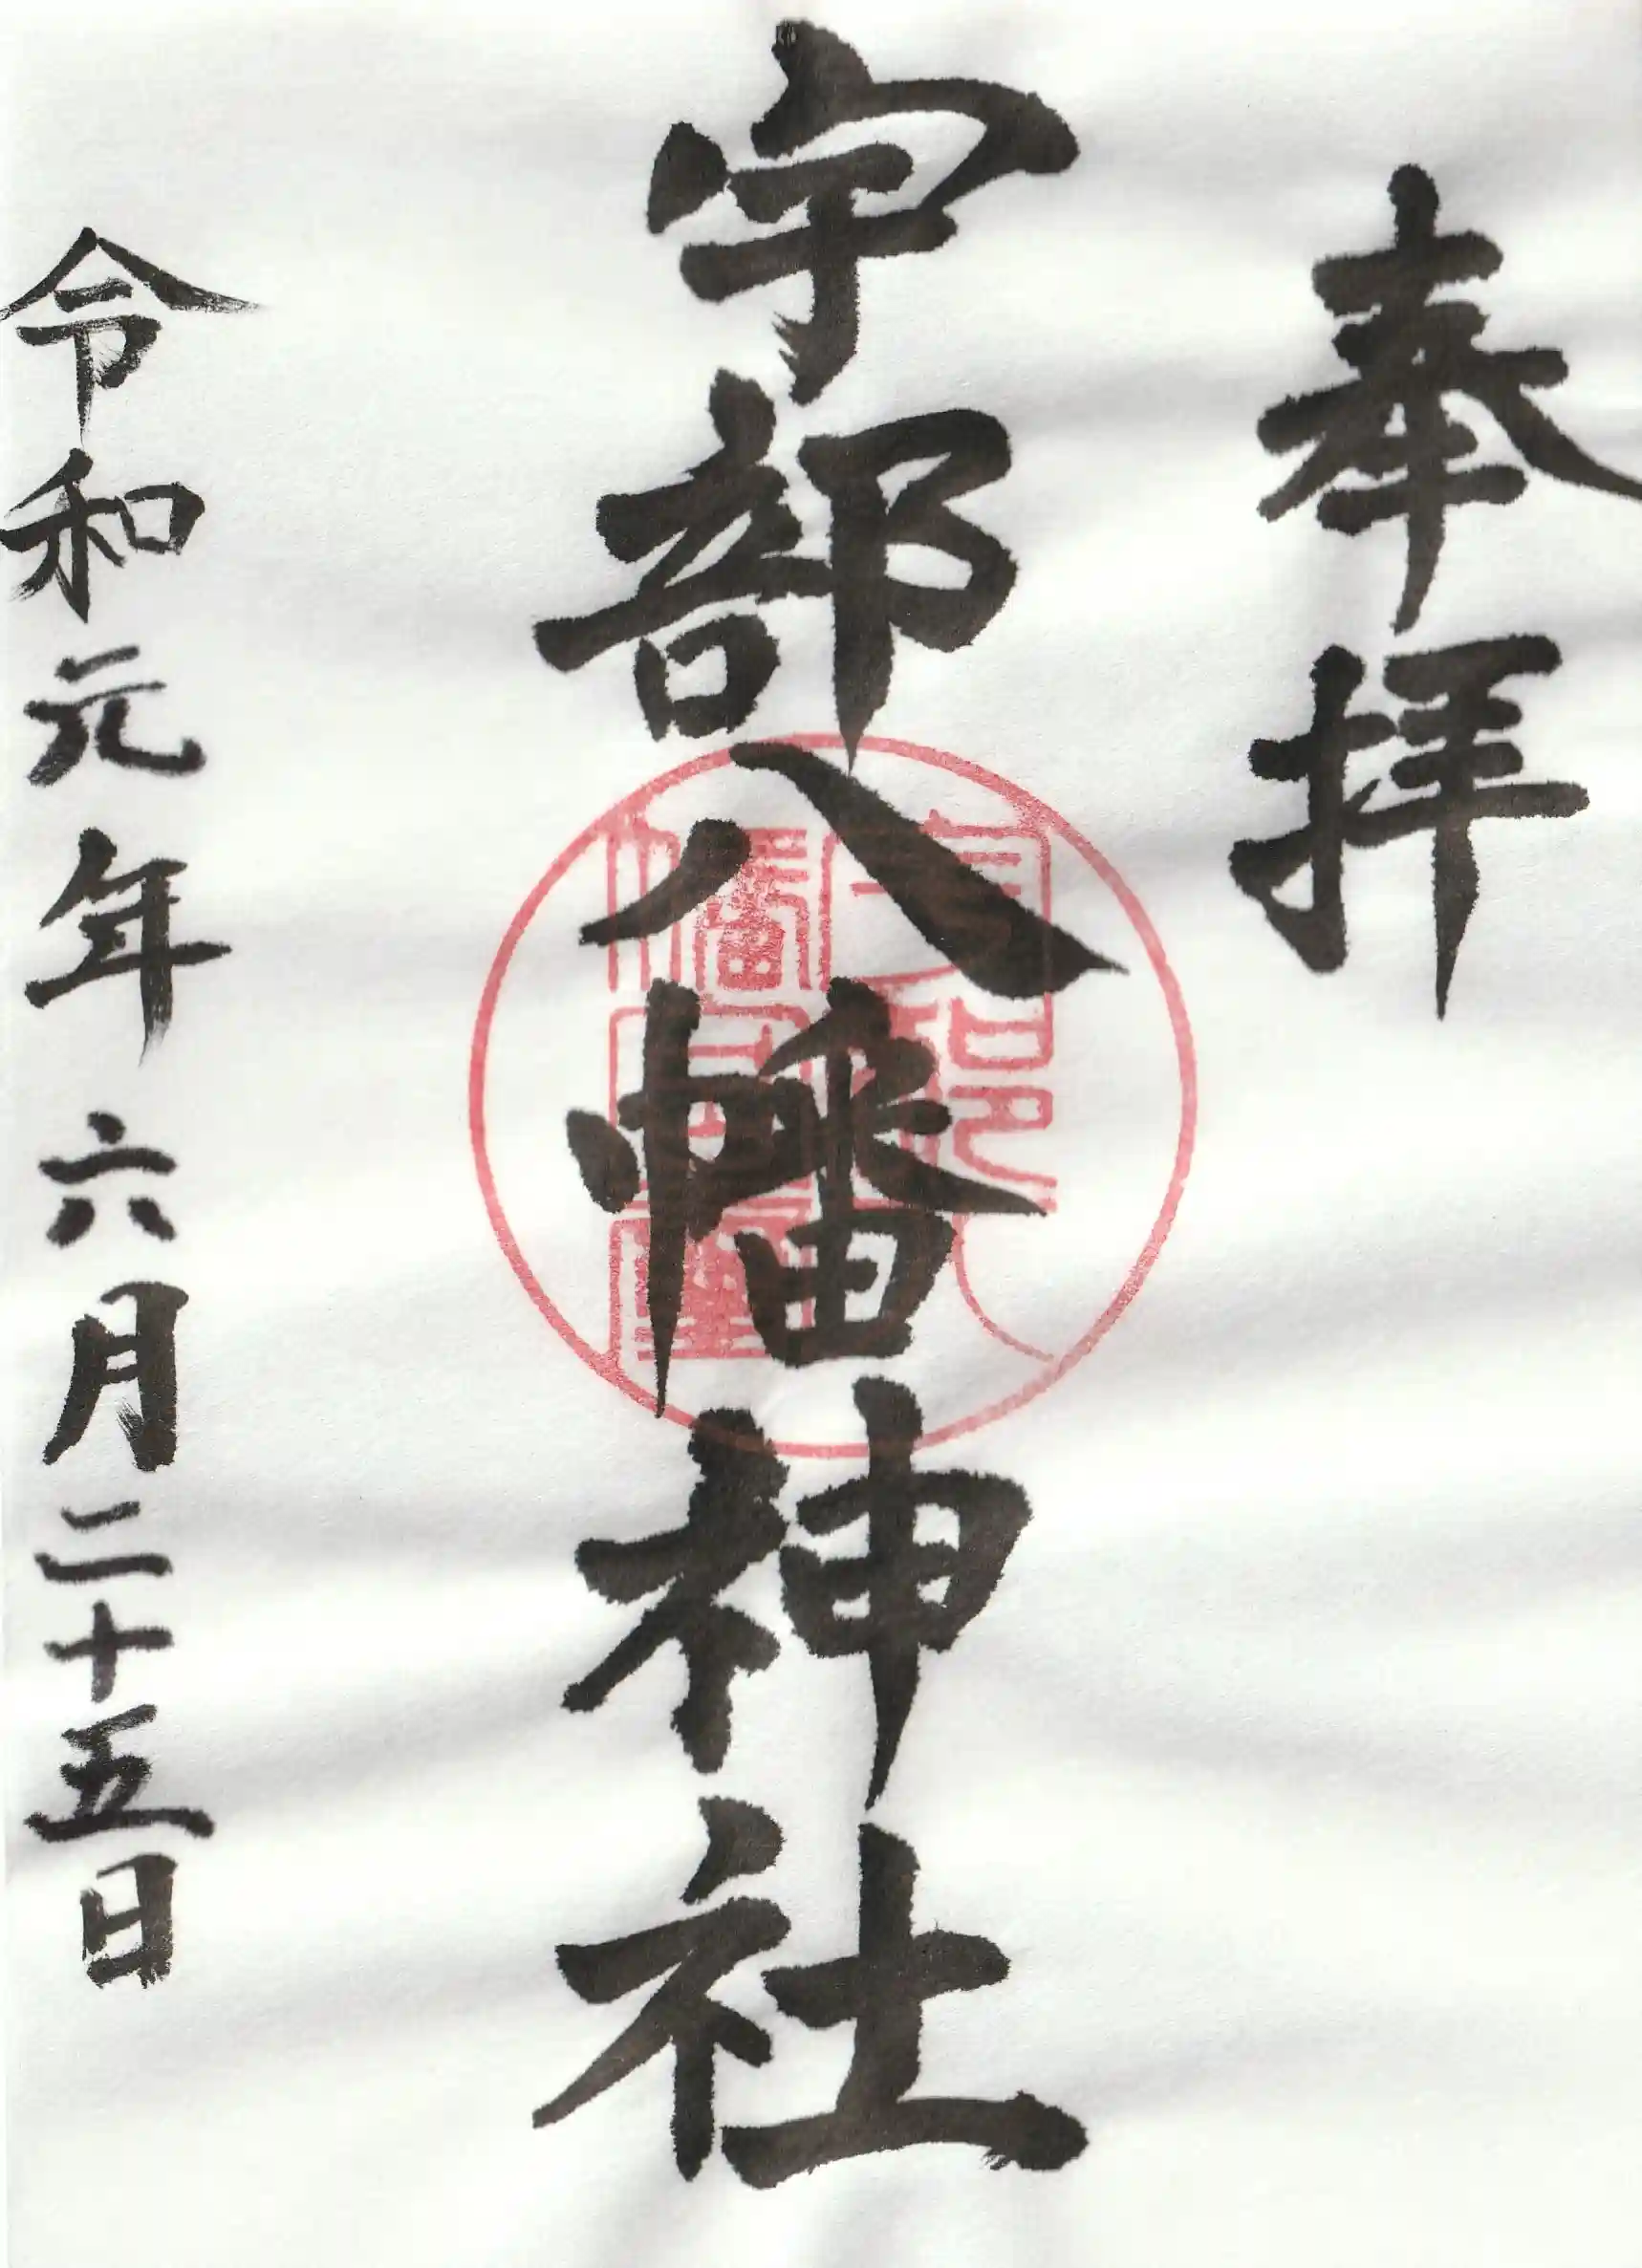 奉拝
宇部八幡神社
令和元年 六月二十五日